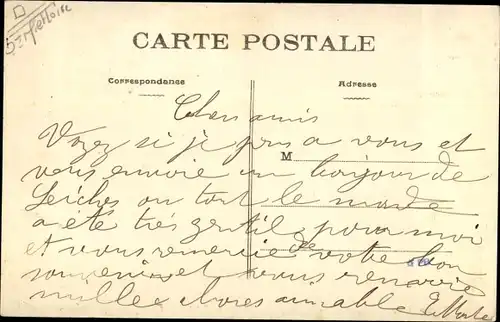 CARTE POSTALE
Correspondance
Adresse
Chers amis
Voyez si je pens a vous et
M
vous envoie un bonjour de
ou tout le monde
a été très gentil pour moi
et vous remercie de votre bon
souvenir et vous renvoie
mille choses aimable